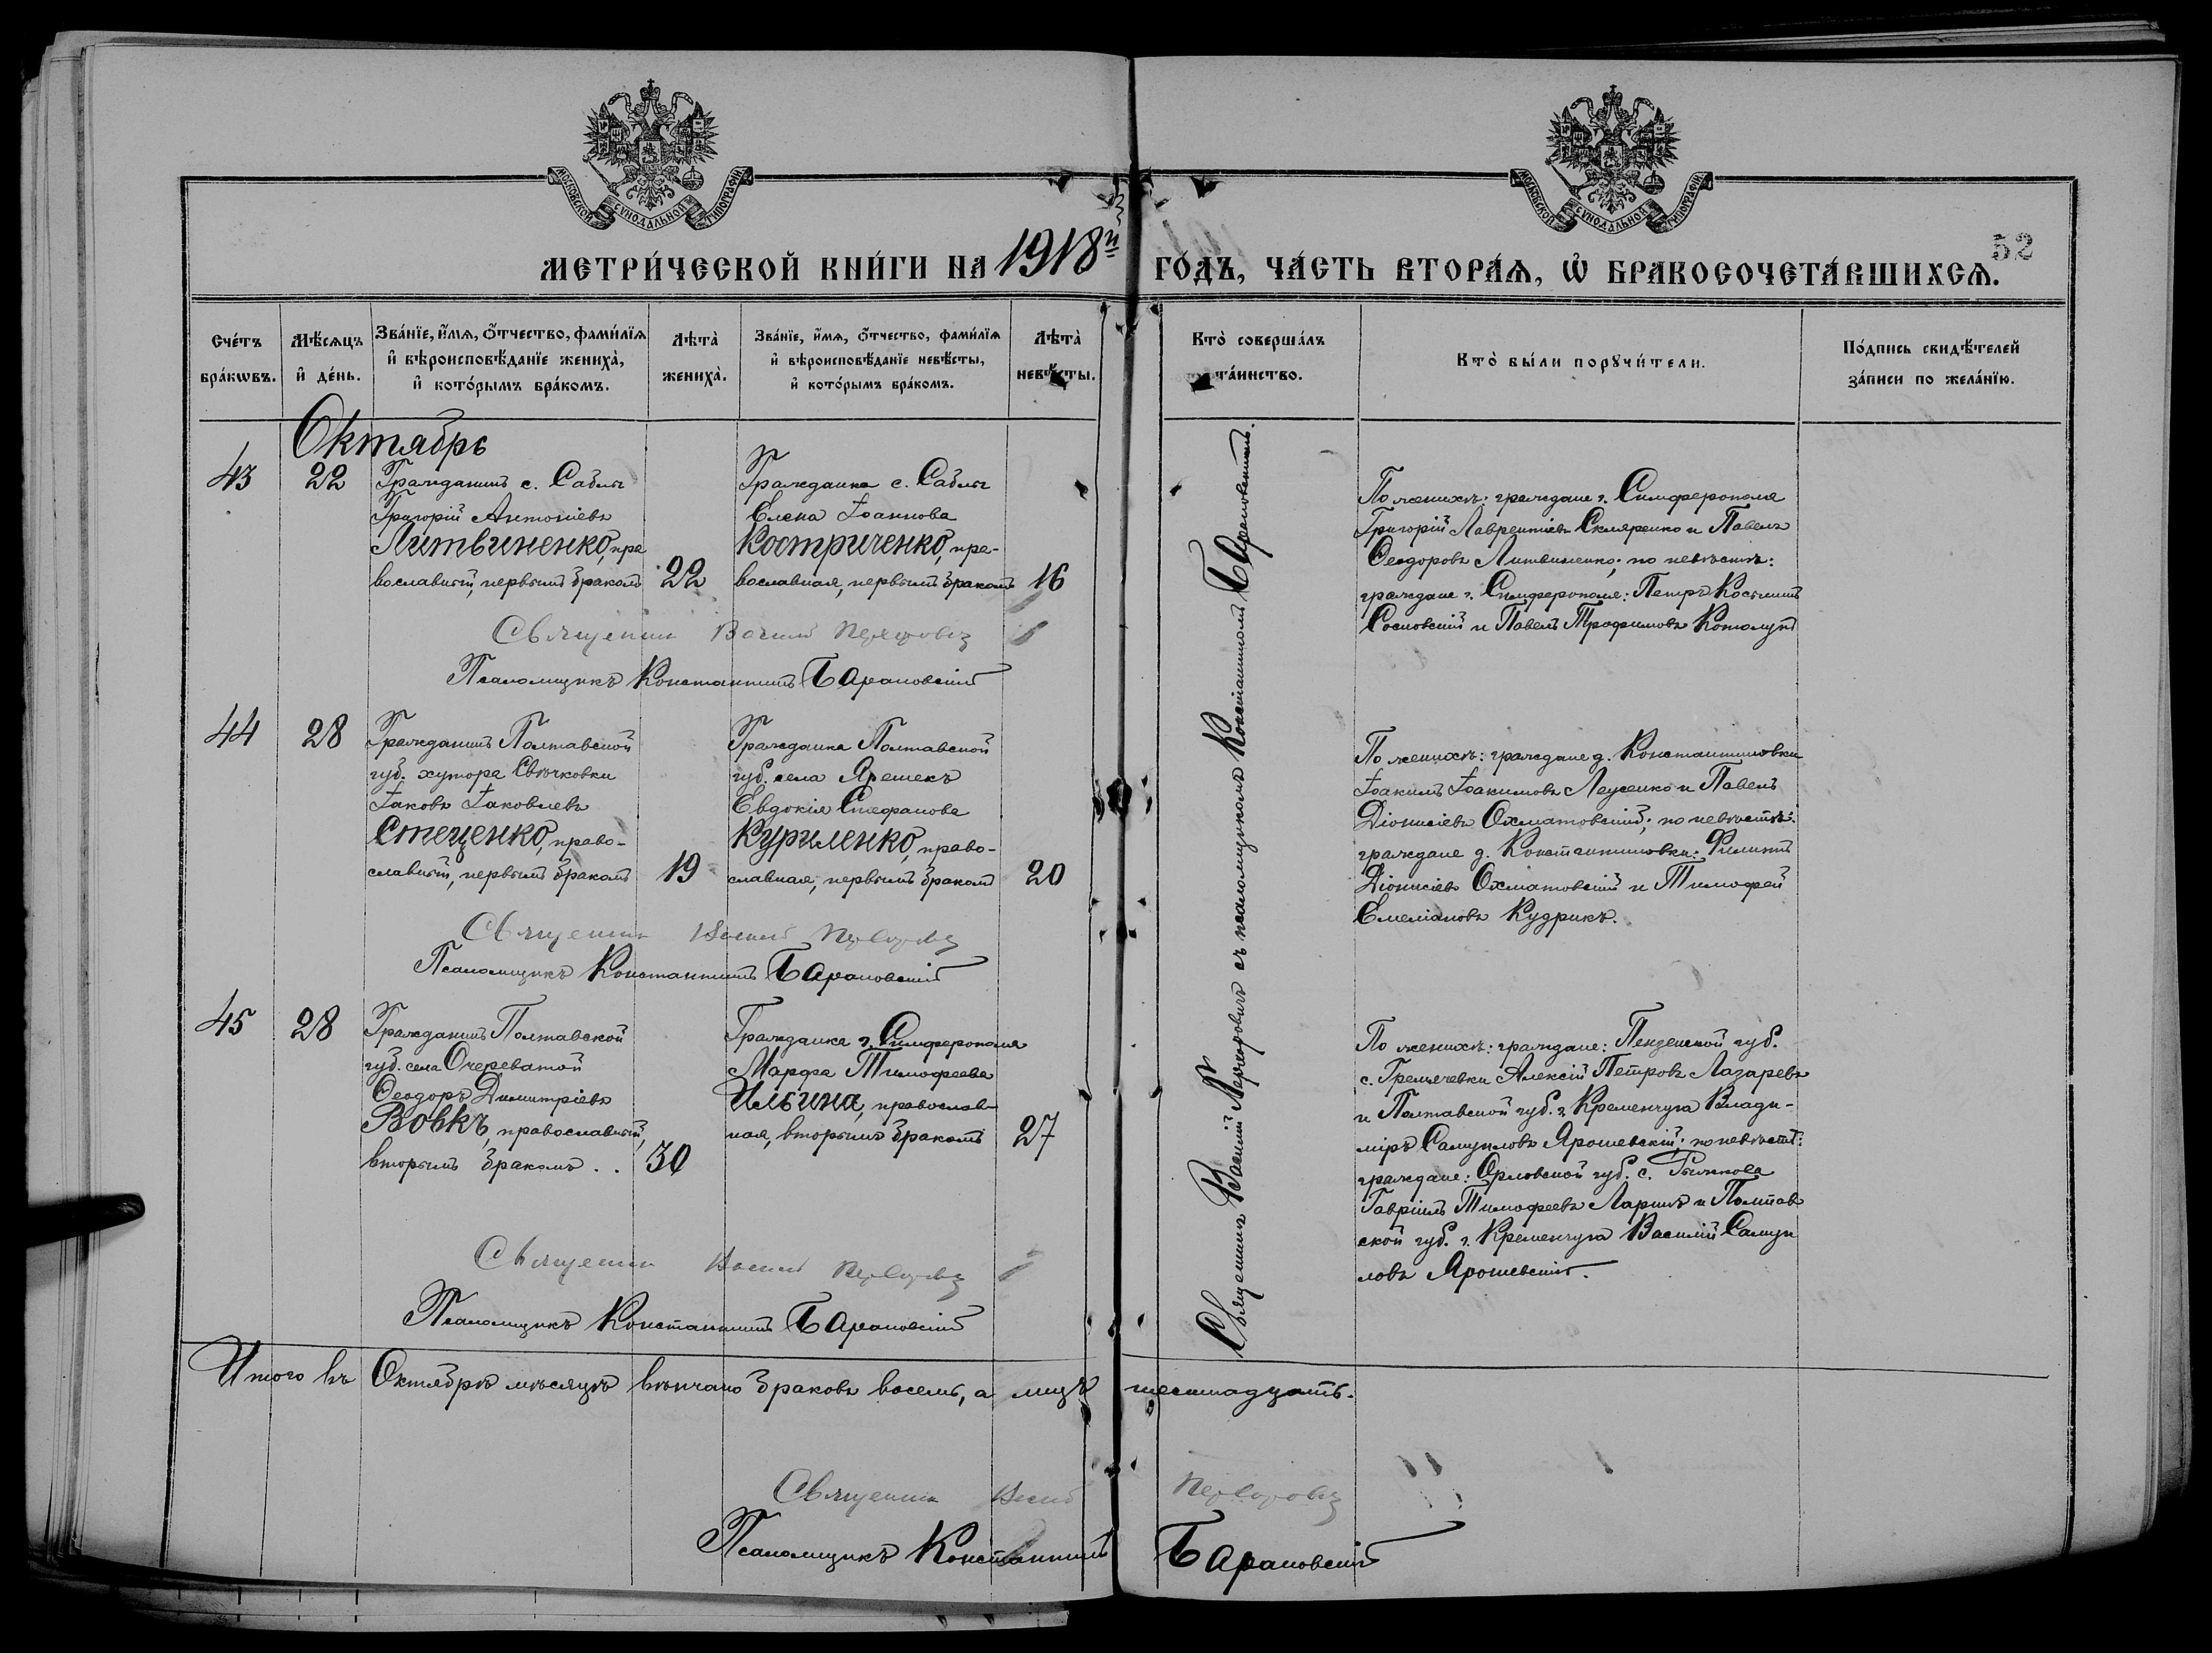 МОСКОВСКОЙ СѴНОДАЛЬНОЙ ТИПОГРАФІИ
МОСКОВСКОЙ СѴНОДАЛЬНОЙ ТИПОГРАФІИ
52
МЕТРИ́ЧЕСКОЙ КНИ́ГИ НА 1918й ГО́ДЪ, ЧА́СТЬ ВТОРА́Я, Ѡ҆ БРАКОСОЧЕТА́ВШИХСЯ.
Сче́тъ бра́кѡвъ.
Мѣ́сяцъ и҆ де́нь.
Зва́нїе, и҆́мя, ѻ҆́тчество, фами́лїя и҆ вѣроисповѣ́данїе жениха̀, и҆ кото́рымъ бра́комъ.
Лѣта̀ жениха̀.
Зва́нїе, и҆́мя, ѻ҆́тчество, фами́лїя и҆ вѣроисповѣ́данїе невѣ́сты, и҆ кото́рымъ бра́комъ.
Лѣта̀ невѣ́сты.
Кто̀ соверша́лъ та́инство.
Кто̀ бы́ли порꙋчи́тели.
По́дпись свидѣ́телей за́писи по жела́нїю.
Октябрь
43
22
Гражданинъ с. Саблы
Григорій Антоніевъ
Литвиненко, пра
вославный, первымъ бракомъ
22
Гражданка с. Саблы
Елена Іоаннова
Костриченко, пра-
вославная, первымъ бракомъ
16
По женихѣ: граждане г. Симферополя
Григорій Лаврентіевъ Скляренко и Павелъ
Ѳеодоровъ Литвиненко; по невѣстѣ:
граждане г. Симферополя: Петръ
Сосновскій и Павелъ Трофимовъ
Священникъ Василій
Псаломщикъ Константинъ Барановскій
44
28
Гражданинъ Полтавской
губ. хутора Свѣчковки
Іаковъ Іаковлевъ
Стеценко, право-
славный, первымъ бракомъ
19
Гражданка Полтавской
губ. села Ярешекъ
Евдокія Стефанова
Куриленко, право-
славная, первымъ бракомъ
20
По женихѣ: граждане д. Константиновки
Іоакимъ Іоакимовъ и Павелъ
Діонисіевъ Охматовскій; по невѣстѣ:
граждане д. Константиновки: Филиппъ
Діонисіевъ Охматовскій и Тимофей
Емеліановъ Кудрикъ.
Священникъ Василій
Псаломщикъ Константинъ Барановскій
45
28
Гражданинъ Полтавской
губ. села Очереватой
Ѳеодоръ Димитріевъ
Вовкъ, православный,
вторымъ бракомъ . .
30
Гражданка г. Симферополя
Марфа Тимофеева
Ильина, православ-
ная, вторымъ бракомъ
27
По женихѣ: граждане: Пензенской губ.
с. Алексій Петровъ Лазаревъ
и Полтавской губ. г. Кременчуга Влади-
міръ Самуиловъ Ярошевскій; по невѣстѣ:
граждане: Орловской губ. с.
Гавріилъ Тимофеевъ Ларинъ и Полтав
ской губ. г. Кременчуга Василій Самуи
ловъ Ярошевскій.
Священникъ Василій
Псаломщикъ Константинъ Барановскій
Священникъ Василій съ псаломщикомъ Константиномъ Барановскимъ.
Итого въ Октябрѣ мѣсяцѣ вѣнчано браковъ восемь, а лицъ шестнадцать.
Священникъ Василій
Псаломщикъ Константинъ Барановскій